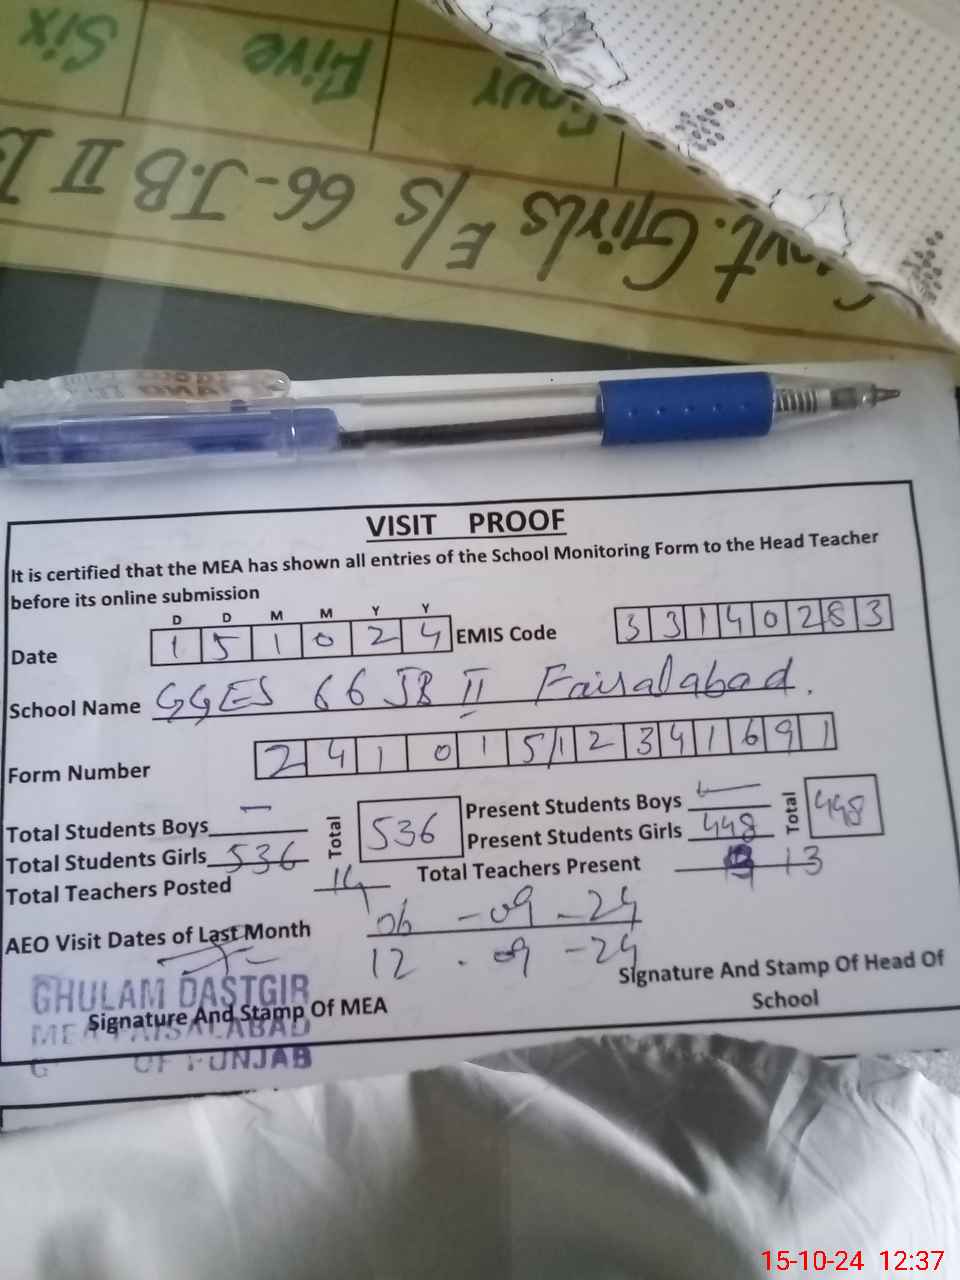 Six Five Four
Govt. Girls E/S 66-J.B II
VISIT PROOF
It is certified that the MEA has shown all entries of the School Monitoring Form to the Head Teacher
before its online submission
D D M M Y Y
Date 1 5 1 0 2 4 EMIS Code 3 3 1 4 0 2 8 3
School Name GGES 66 JB II Faisalabad.
Form Number 2 4 1 0 1 5 1 2 3 4 1 6 9 1
Total Students Boys — Total 536 Present Students Boys — Total 448
Total Students Girls 536 Present Students Girls 448
Total Teachers Posted 14 Total Teachers Present 13
AEO Visit Dates of Last Month 06 - 09 - 24
12 . 09 - 24
GHULAM DASTGIR
Signature And Stamp Of MEA
MEA FAISALABAD
OF PUNJAB
Signature And Stamp Of Head Of
School
15-10-24 12:37